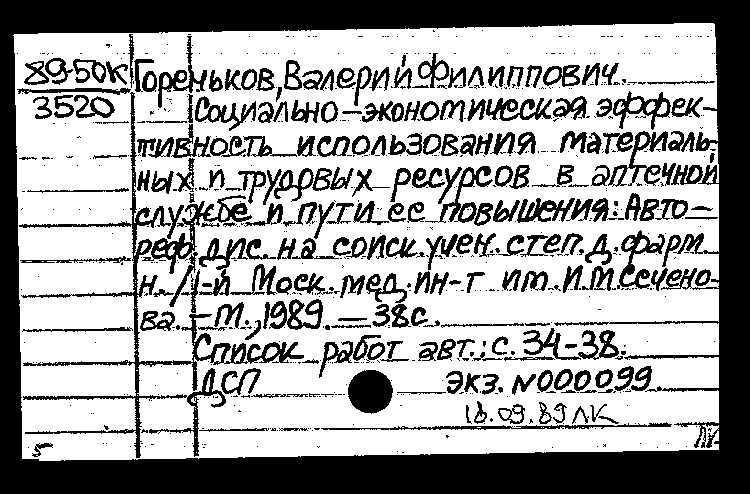 89-50К
3520
Гореньков, Валерий Филиппович.
Социально-экономическая эффек-
тивность использования материаль-
ных и трудовых ресурсов в аптечной
службе и пути ее повышения: Авто-
реф. дис. на соиск. учен. степ. д. фарм.
н. / 1-й Моск. мед. ин-т им. И.М.Сечено-
ва. - М., 1989. - 38с.
Список работ авт.: с. 34-38.
ДСП экз. N000099.
18.09.89 ЛК
5